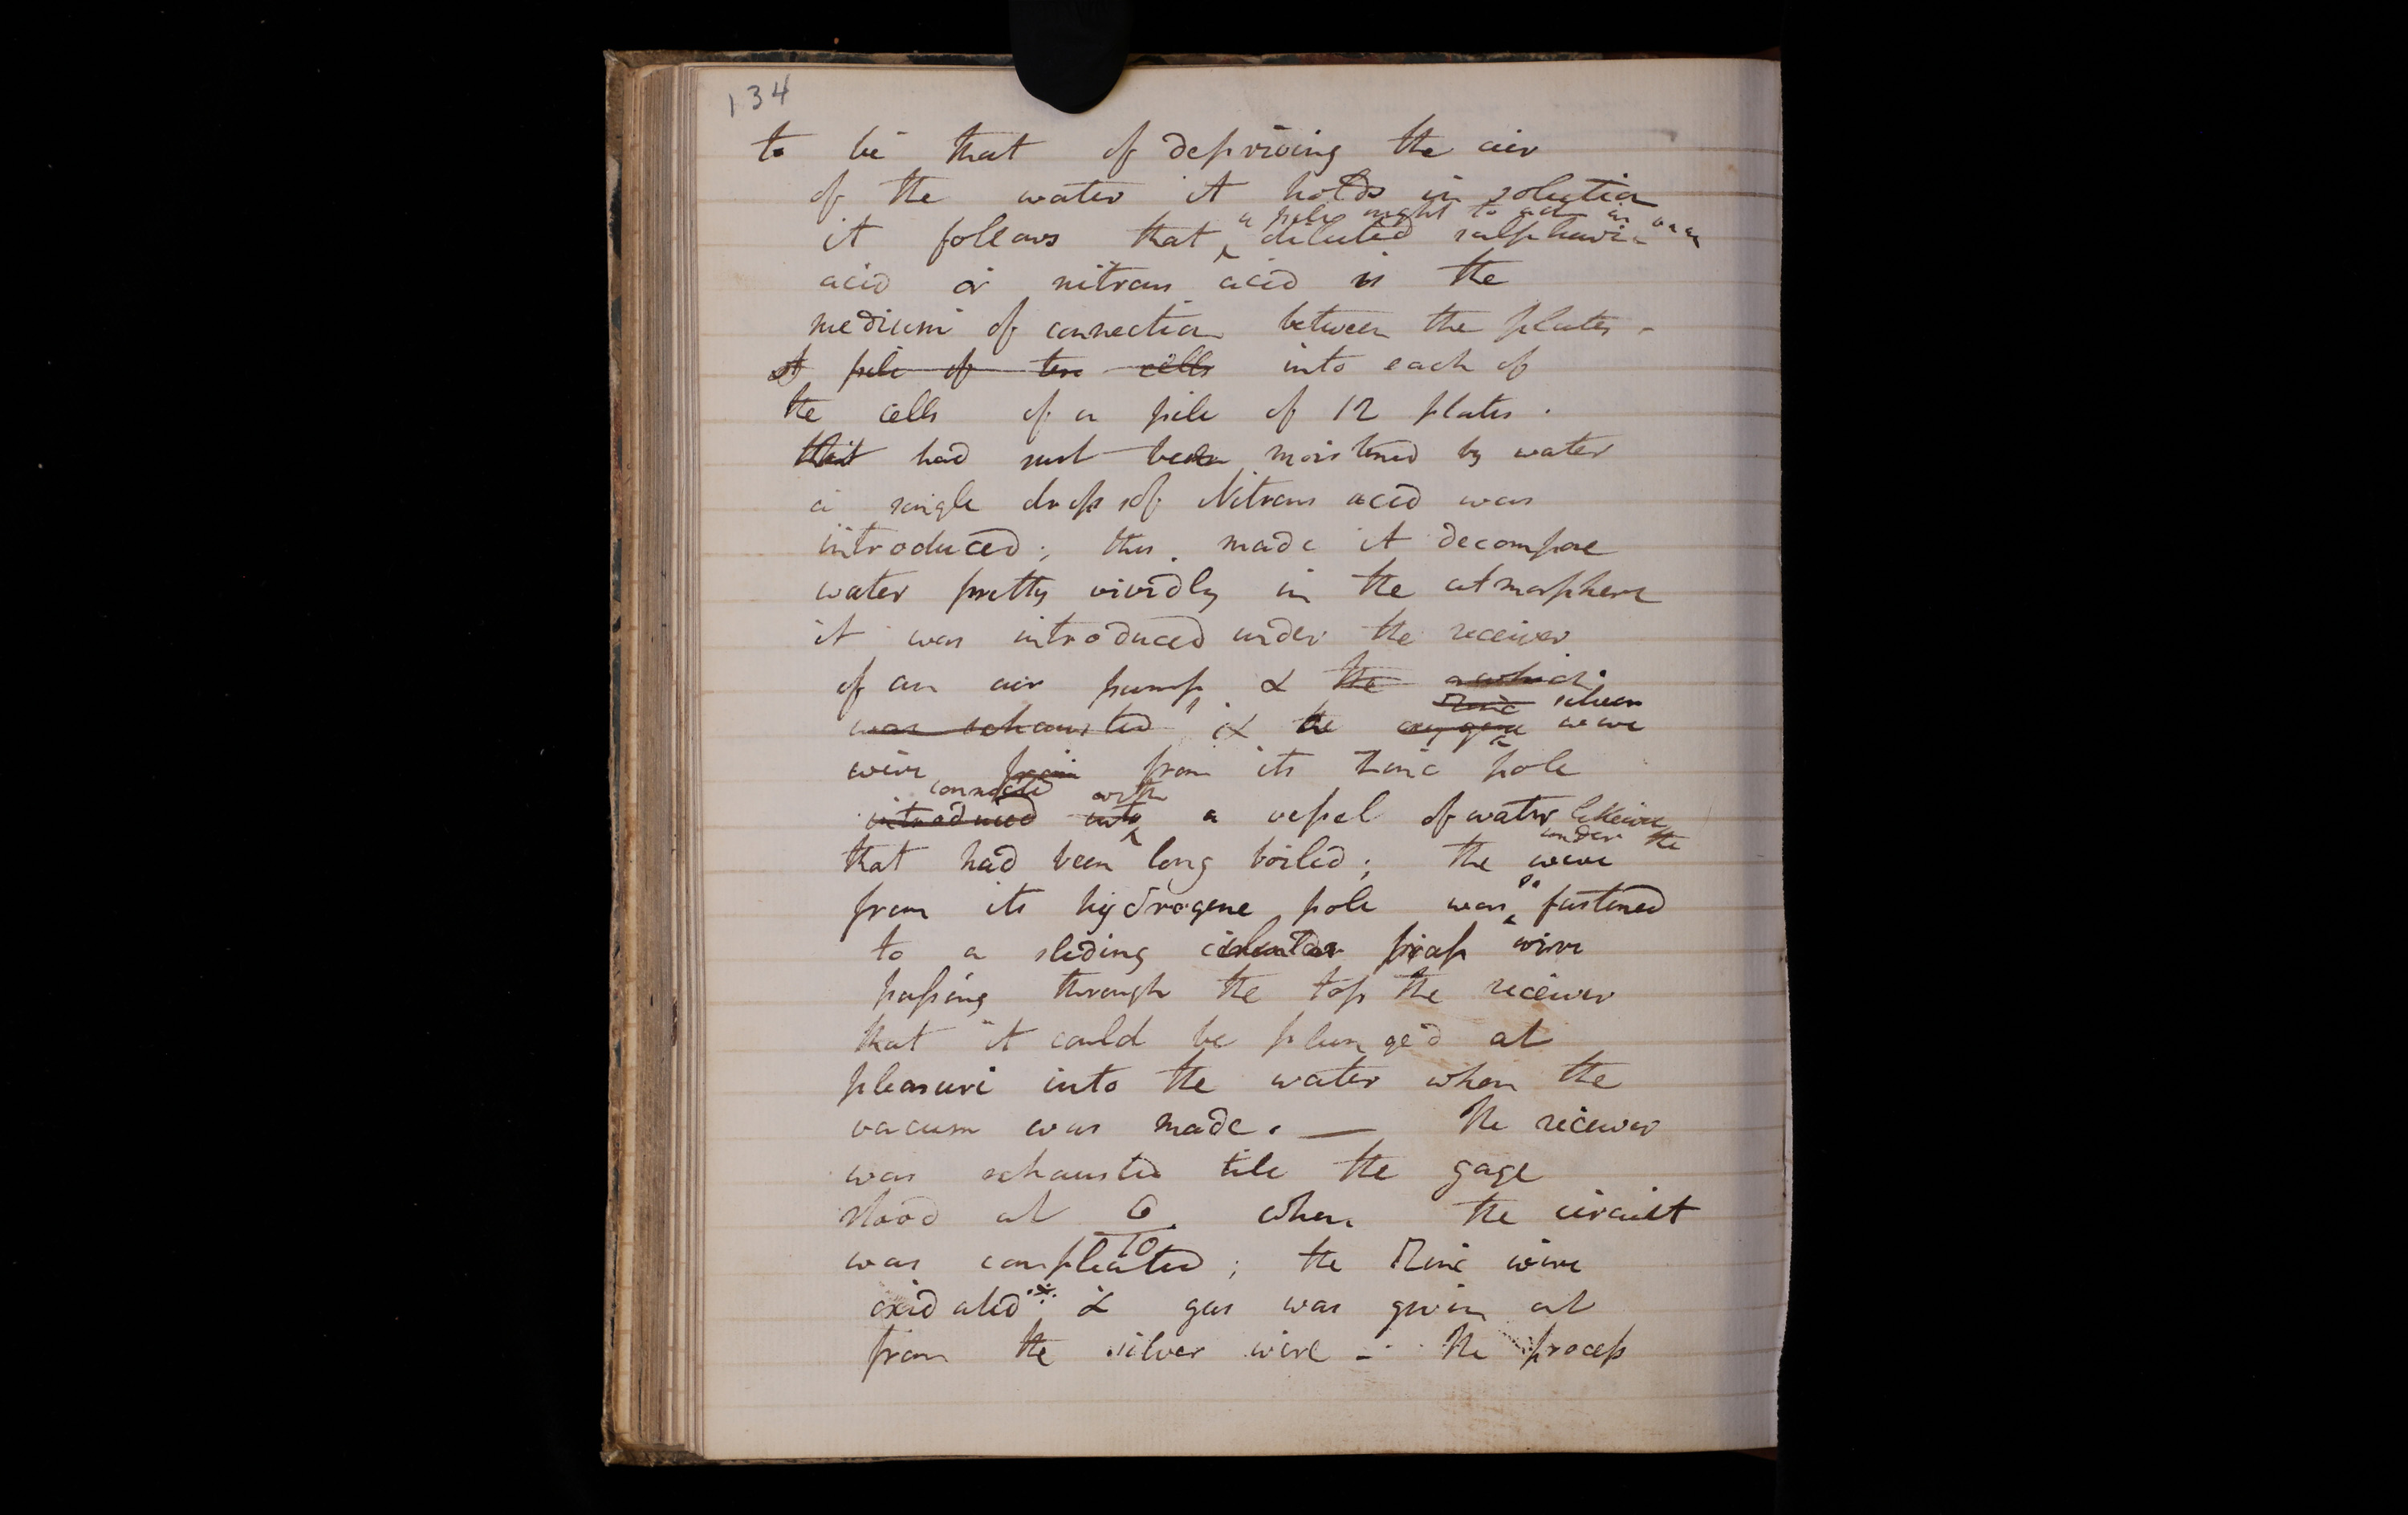 134
to be that of depriving the air
of the water it holds in solution
a pile ought to act in vac
it follows that diluted sulphuric
acid or nitrous acid is the
medium of connection between the plates -
A pile of ten cells into each of
the cells of a pile of 12 plates.
that had just been moistened by water
a single drop of Nitrous acid was
introduced; this made it decompose
water pretty vividly in the atmosphere
it was introduced under the receiver
of an air pump & the which
Zinc silver
was exhausted & the oxygene wire
wire from from its Zinc pole
connected with
introduced into a vessel of water likewise
under the
that had been long boiled; the wire
so
from its hydrogene pole was fastened
to a sliding brass wire
passing through the top the receiver
that it could be plunged at
pleasure into the water when the
vacuum was made. — The receiver
was exhausted till the gage
stood at 6/10 when the circuit
was compleated; the Zinc wire
oxidated & gas was given at
from the silver wire - The process